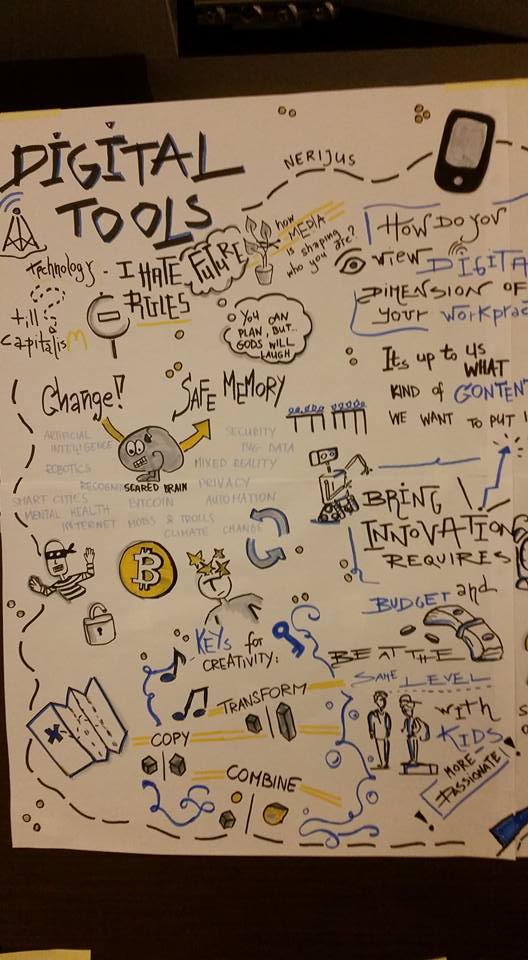 DIGITAL
TOOLS
NERIJUS
Technology -
till
Capitalism
I HATE
RULES
FUTURE
how
MEDIA
is shaping
who you are?
YOU CAN
PLAN, BUT...
GODS WILL
LAUGH
HOW DO YOU
VIEW DIGITA
DIMENSION OF
YOUR WORKPRAC
IT'S UP TO US
WHAT
KIND OF CONTEN
WE WANT TO PUT I
Change!
SAFE MEMORY
SCARED BRAIN
ARTIFICIAL
INTELLIGENCE
ROBOTICS
SMART CITIES
MENTAL HEALTH
INTERNET MOBS & TROLLS
BITCOIN
SECURITY
BIG DATA
MIXED REALITY
PRIVACY
AUTOMATION
CLIMATE CHANGE
BRING
INNOVATION
REQUIRES
BUDGET and
KEYS for
CREATIVITY:
TRANSFORM
COPY
COMBINE
BE AT THE
SAME LEVEL
with
KIDS
MORE
PASSIONATE!